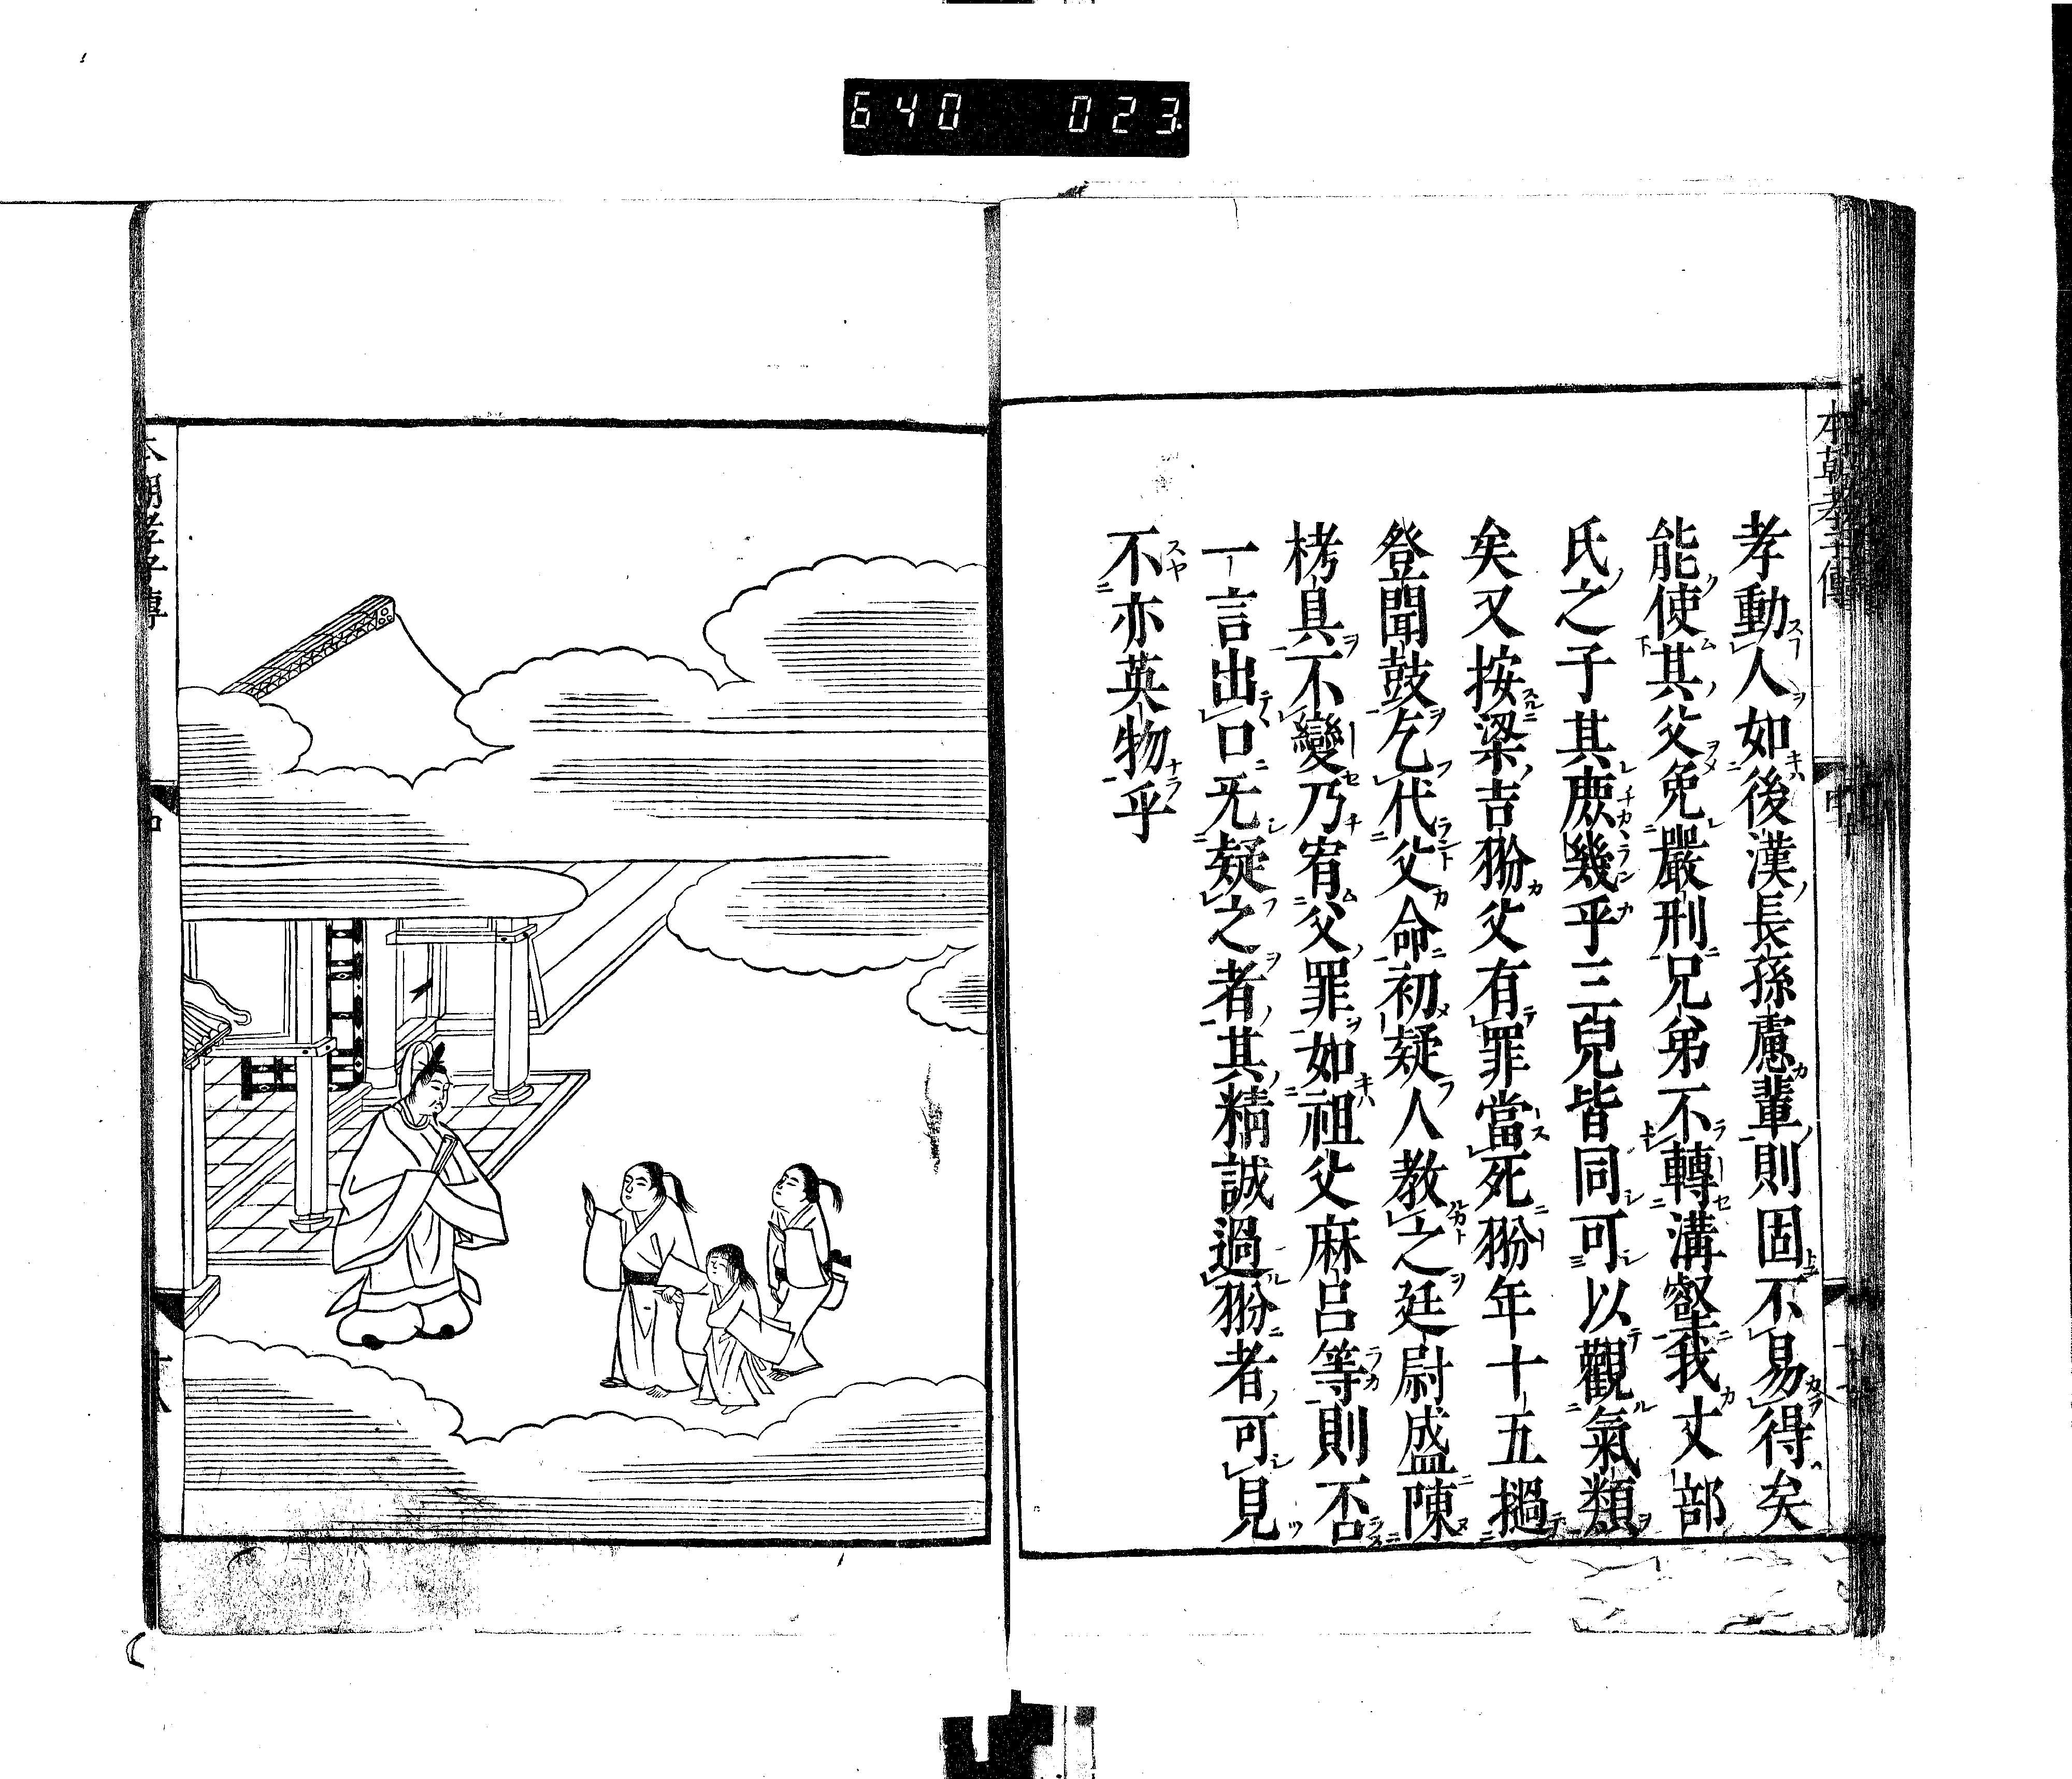 640 023
本朝孝子傳
孝動人如後漢長孫慮輩則固不易得矣
能使其父免嚴刑兄弟不轉溝壑我丈部
氏之子其庶幾乎三兒皆同可以觀氣類
矣又按梁吉翂父有罪當死翂年十五撾
登聞鼓乞代父命初疑人教之廷尉盛陳
栲具不變乃宥父罪如祖父麻呂等則不
一言出口旡疑之者其精誠過翂者可見
不亦英物乎
本朝孝子傳